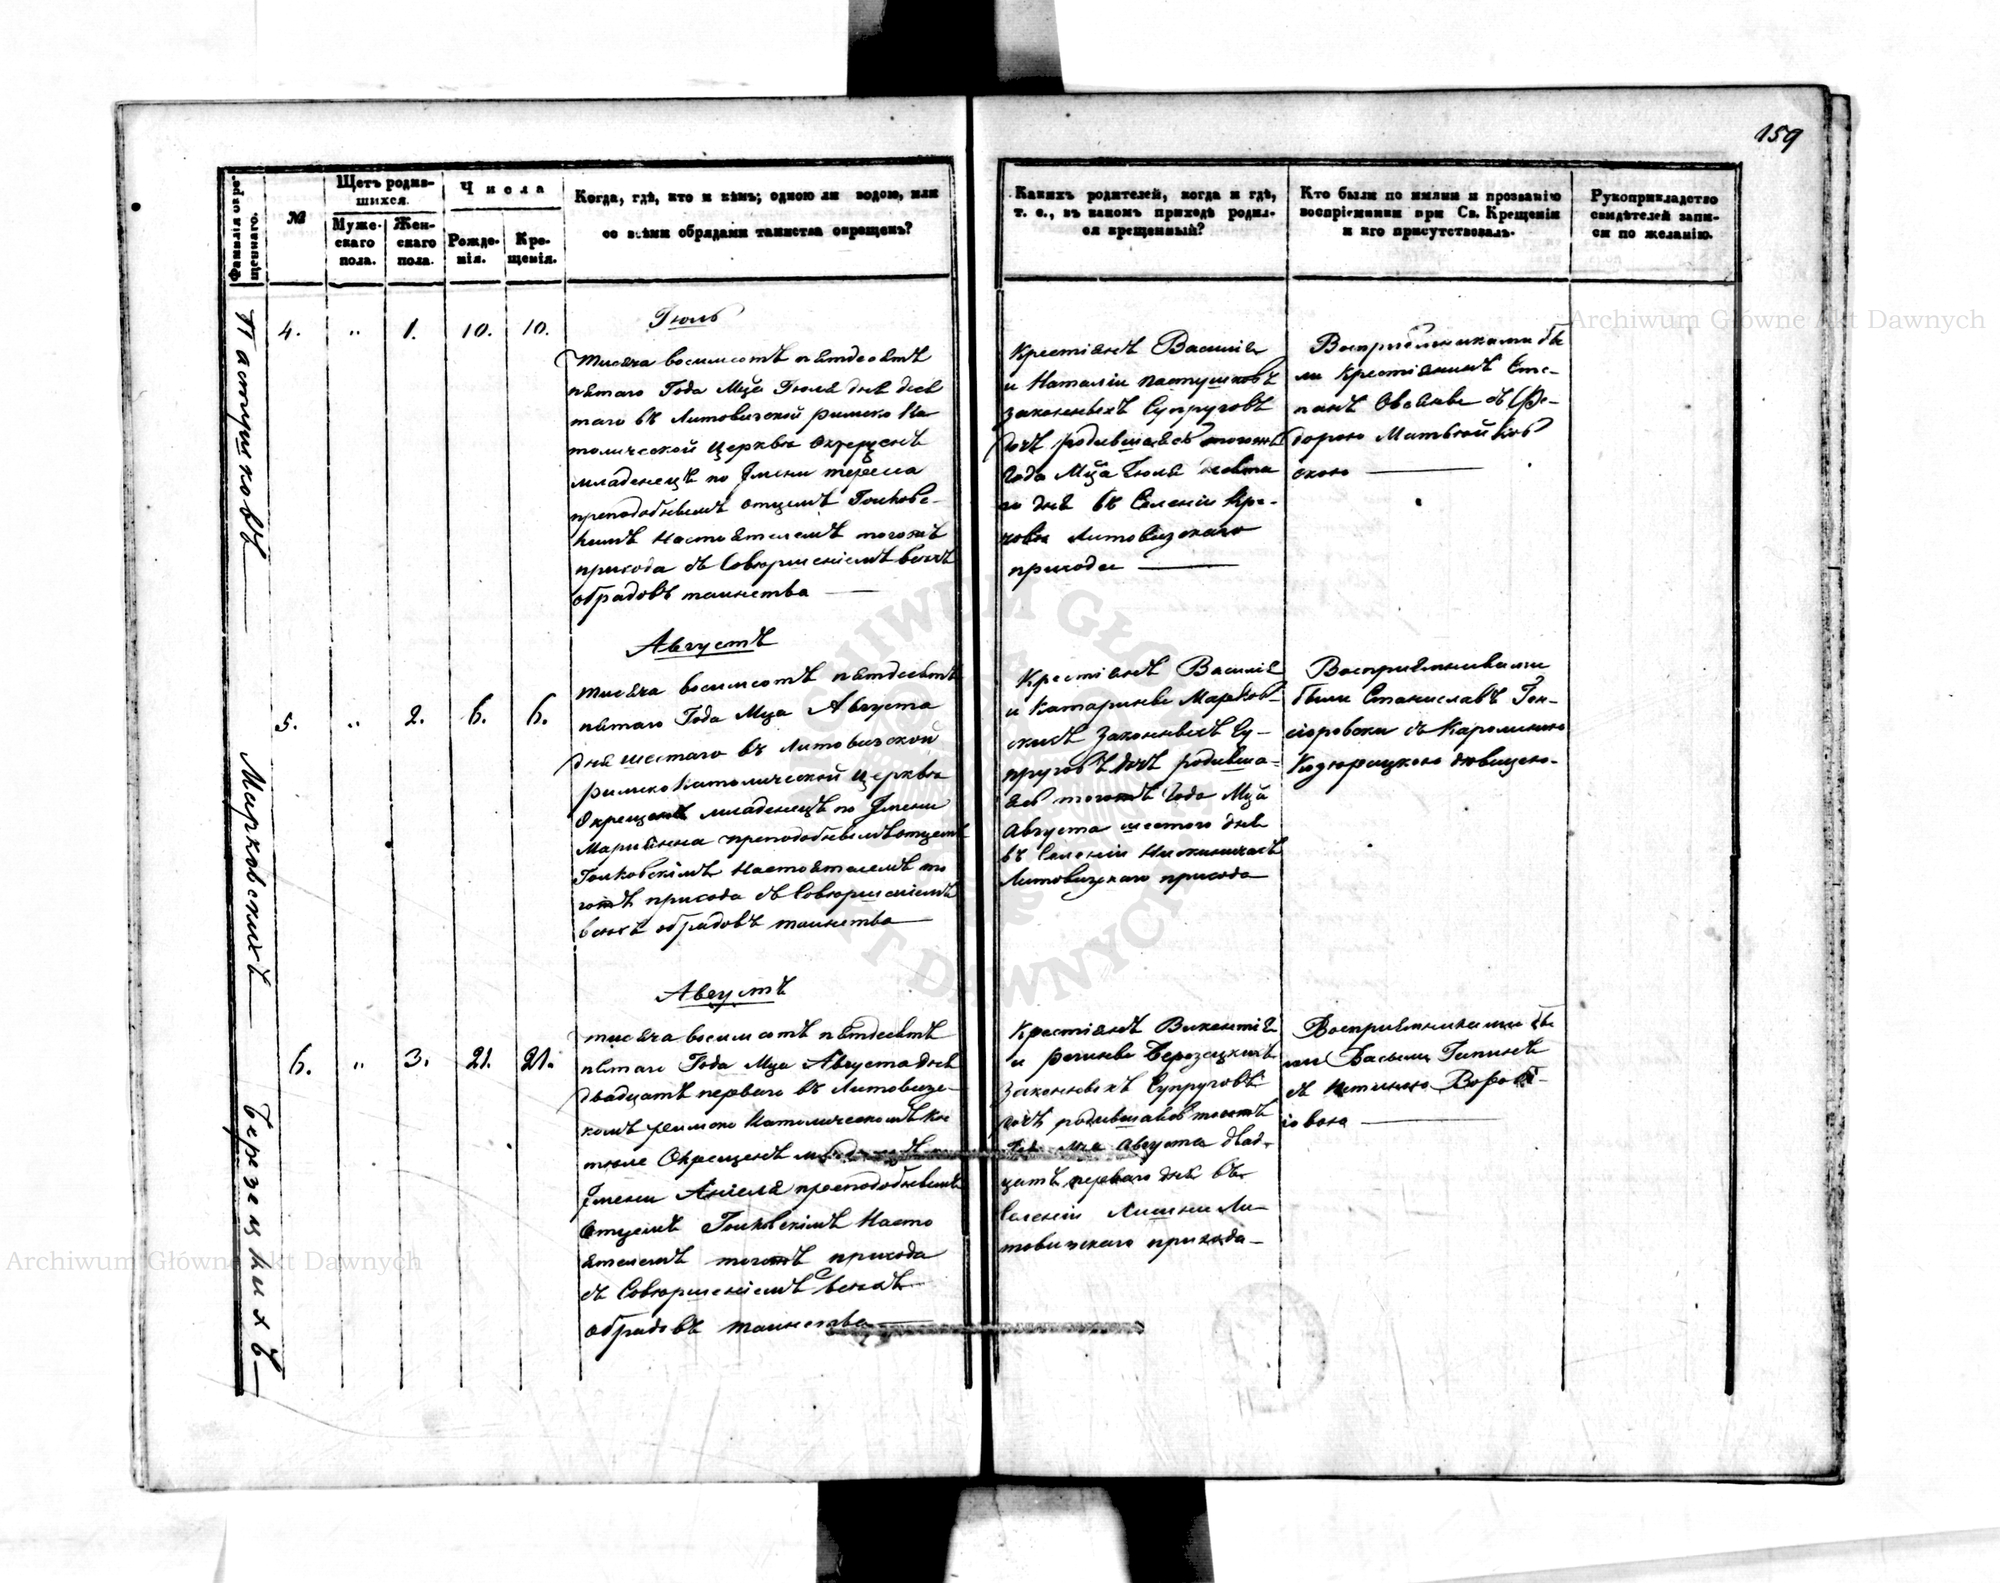 159
Фамилія окре-
щеннаго.
№
Щетъ родив-
шихся.
Муже-
скаго
пола.
Жен-
скаго
пола.
Числа
Рожде-
нія.
Кре-
щенія.
Когда, гдѣ, кто и кѣмъ; одною ли водою, или
со всѣми обрядами таинства окрещенъ?
Какихъ родителей, когда и гдѣ,
т. е., въ какомъ приходѣ родил-
ся крещенный?
Кто были по имяни и прозванію
воспріемники при Св. Крещеніи
и кто присутствовалъ.
Рукоприкладство
свидѣтелей запи-
си по желанію.
Пастушковъ
4. „ 1. 10. 10.
Іюль
тисяча восимсотъ пятдесятъ
пятаго Года Мца Іюля дня деся
таго въ Литовизской римско Ка
толической Церквы Окрещенъ
младенецъ по Імени тереса
преподобнымъ отцемъ
Настоятелемъ тогожъ
прихода съ Совершеніемъ всехъ
обрадовъ таинства
Крестіянъ Василія
и Наталіи пастушковъ
законныхъ Супруговъ
дочъ родившаясь тогожъ
Года Мца Іюля десята
го дня въ Селеніи
Литовизскаго
прихода
Воспріемниками бы
ли Крестіянинъ Сте-
панъ съ Фе-
дорою
скою
Марковскихъ
5. „ 2. 6. 6.
Августъ
тисяча восимсотъ пятдесятъ
пятаго Года Мца Августа
дня шестаго въ Литовизской
римско Католической Церквы
Окрещенъ младенецъ по Імени
Маріянна преподобнымъ отцемъ
Настоятелемъ то
гожъ прихода съ Совершеніемъ
всехъ обрадовъ таинства
Крестіянъ Василія
и Катарины Марков-
скихъ Законныхъ Су-
пруговъ дочъ родивша-
ясь тогожъ Года Мца
Августа шестого дня
въ Селеніи
Литовизскаго прихода
Воспріямниками
были Станиславъ
съ Каролиною
девицею.
Березецкихъ
6. „ 3. 21. 21.
Августъ
тисяча восимсотъ пятдесятъ
пятаго Года Мца Августа дня
двадцатъ перваго въ Литовизс-
комъ римско Католическомъ Ко
стюле Окрещенъ
Імени Аніеля преподобнымъ
Отцемъ Насто
ятелемъ тогожъ прихода
съ Совершеніемъ всехъ
обрадовъ таинства
Крестіянъ Викентія
и Регины Березецкихъ
Законныхъ Супруговъ
дочъ родившаясь тогожъ
Года Мца Августа двад-
цатъ перваго дня въ
Селеніи Лишни Ли-
товизскаго прихода
Воспріямниками бы
ли
съ
Archiwum Główne Akt Dawnych
Archiwum Główne Akt Dawnych
ARCHIWUM GŁÓWNE AKT DAWNYCH